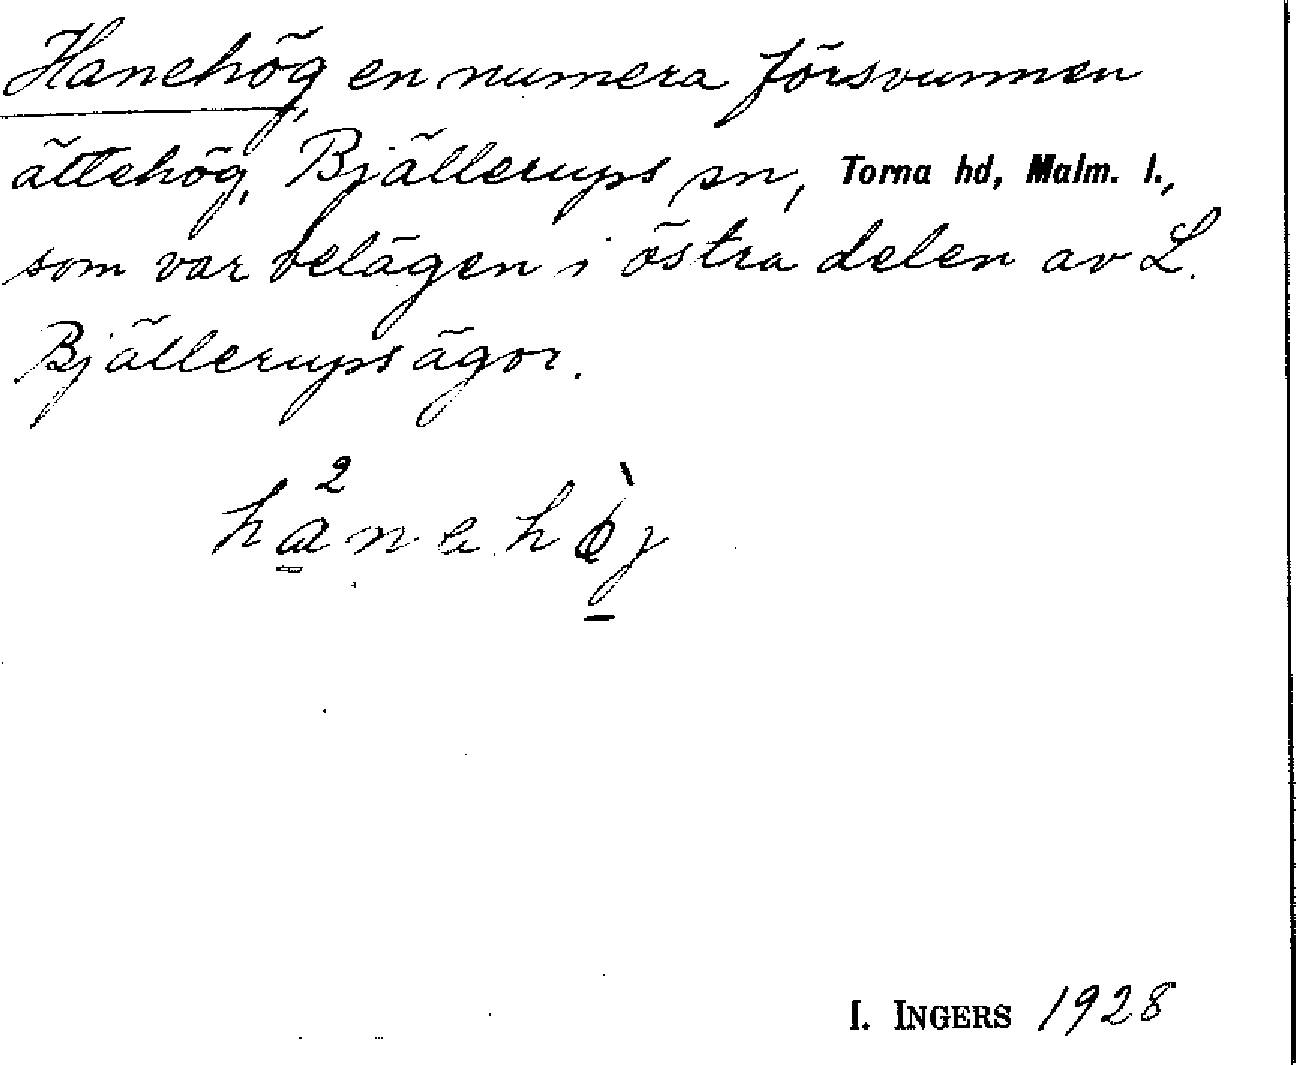 Hanehög, en numera försvunnen
ättehög, Bjällerups sn, Torna hd, Malm. l.,
som var belägen i östra delen av L.
Bjällerups ägor.
hа̊²nehø̀j
I. INGERS 1928